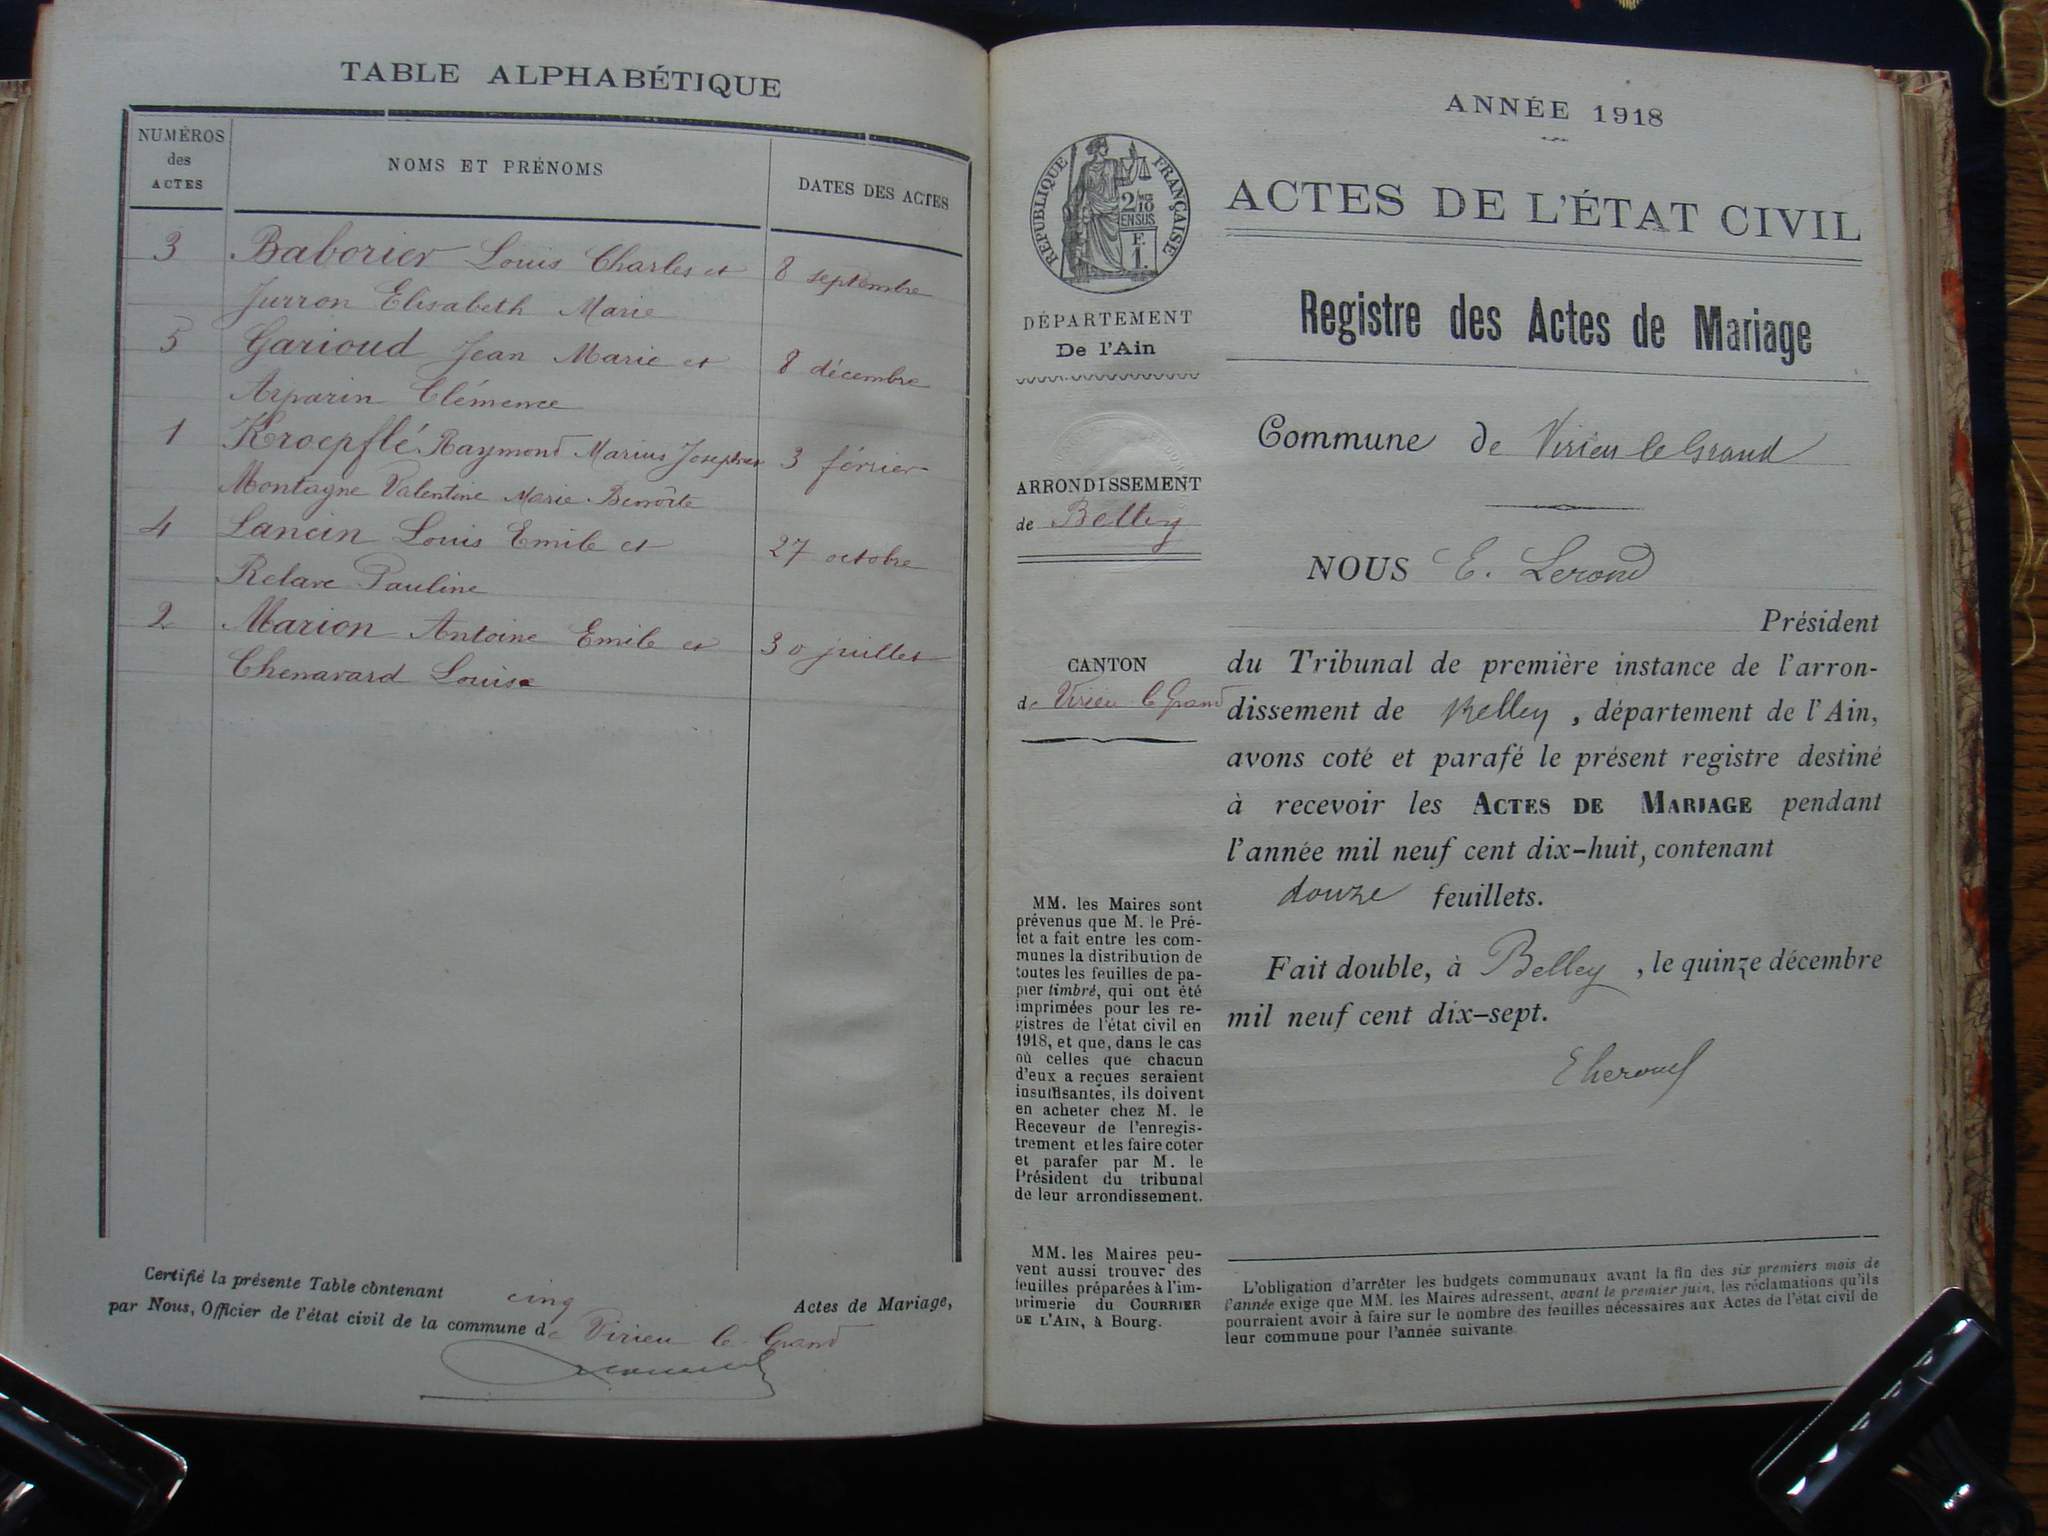 TABLE ALPHABÉTIQUE
NUMÉROS
des
ACTES
NOMS ET PRÉNOMS
DATES DES ACTES
3 Baborier Louis Charles et 8 septembre
Jurron Elisabeth Marie
5 Garioud Jean Marie et 8 décembre
Arparin Clémence
1 Kroepflé Raymond Marius Joseph et 3 février
Montagne Valentine Marie Benoîte
4 Lancin Louis Emile et 27 octobre
Relave Pauline
2 Marion Antoine Emile et 30 juillet
Chenavard Louise
Certifié la présente Table contenant cinq Actes de Mariage,
par Nous, Officier de l'état civil de la commune de Virieu le Grand
ANNÉE 1918
RÉPUBLIQUE FRANÇAISE
2/10
EN SUS
F.
1.
ACTES DE L'ÉTAT CIVIL
DÉPARTEMENT
De l'Ain
Registre des Actes de Mariage
Commune de Virieu le Grand
ARRONDISSEMENT
de Belley
NOUS E. Lerond
Président
CANTON
de Virieu le Grand
du Tribunal de première instance de l'arron-
dissement de Belley, département de l'Ain,
avons coté et parafé le présent registre destiné
à recevoir les ACTES DE MARIAGE pendant
l'année mil neuf cent dix-huit, contenant
douze feuillets.
Fait double, à Belley, le quinze décembre
mil neuf cent dix-sept.
MM. les Maires sont
prévenus que M. le Pré-
fet a fait entre les com-
munes la distribution de
toutes les feuilles de pa-
pier timbré, qui ont été
imprimées pour les re-
gistres de l'état civil en
1918, et que, dans le cas
où celles que chacun
d'eux a reçues seraient
insuffisantes, ils doivent
en acheter chez M. le
Receveur de l'enregis-
trement et les faire coter
et parafer par M. le
Président du tribunal
de leur arrondissement.
MM. les Maires peu-
vent aussi trouver des
feuilles préparées à l'im-
primerie du COURRIER
DE L'AIN, à Bourg.
L'obligation d'arrêter les budgets communaux avant la fin des six premiers mois de
l'année exige que MM. les Maires adressent, avant le premier juin, les réclamations qu'ils
pourraient avoir à faire sur le nombre des feuilles nécessaires aux Actes de l'état civil de
leur commune pour l'année suivante.